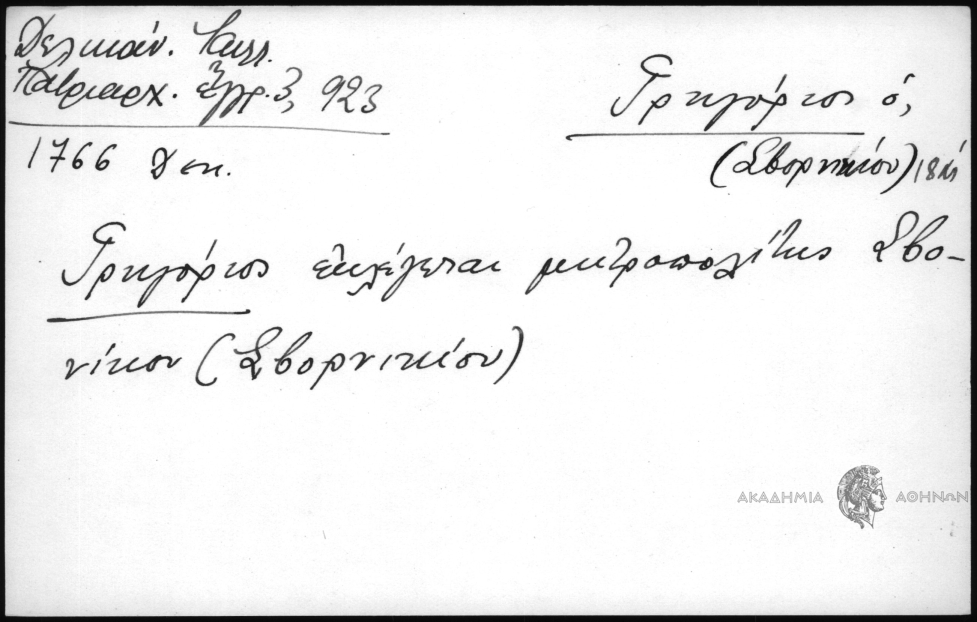 Δελικάν. Καλλ.
Πατριαρχ. Ἔγγρ. 3, 923
1766 Δεκ.
Γρηγόριος ὁ,
(Σβορνικίου) 18
Γρηγόριος ἐκλέγεται μητροπολίτης Σβο-
νίκου (Σβορνικίου)
ΑΚΑΔΗΜΙΑ ΑΘΗΝΩΝ